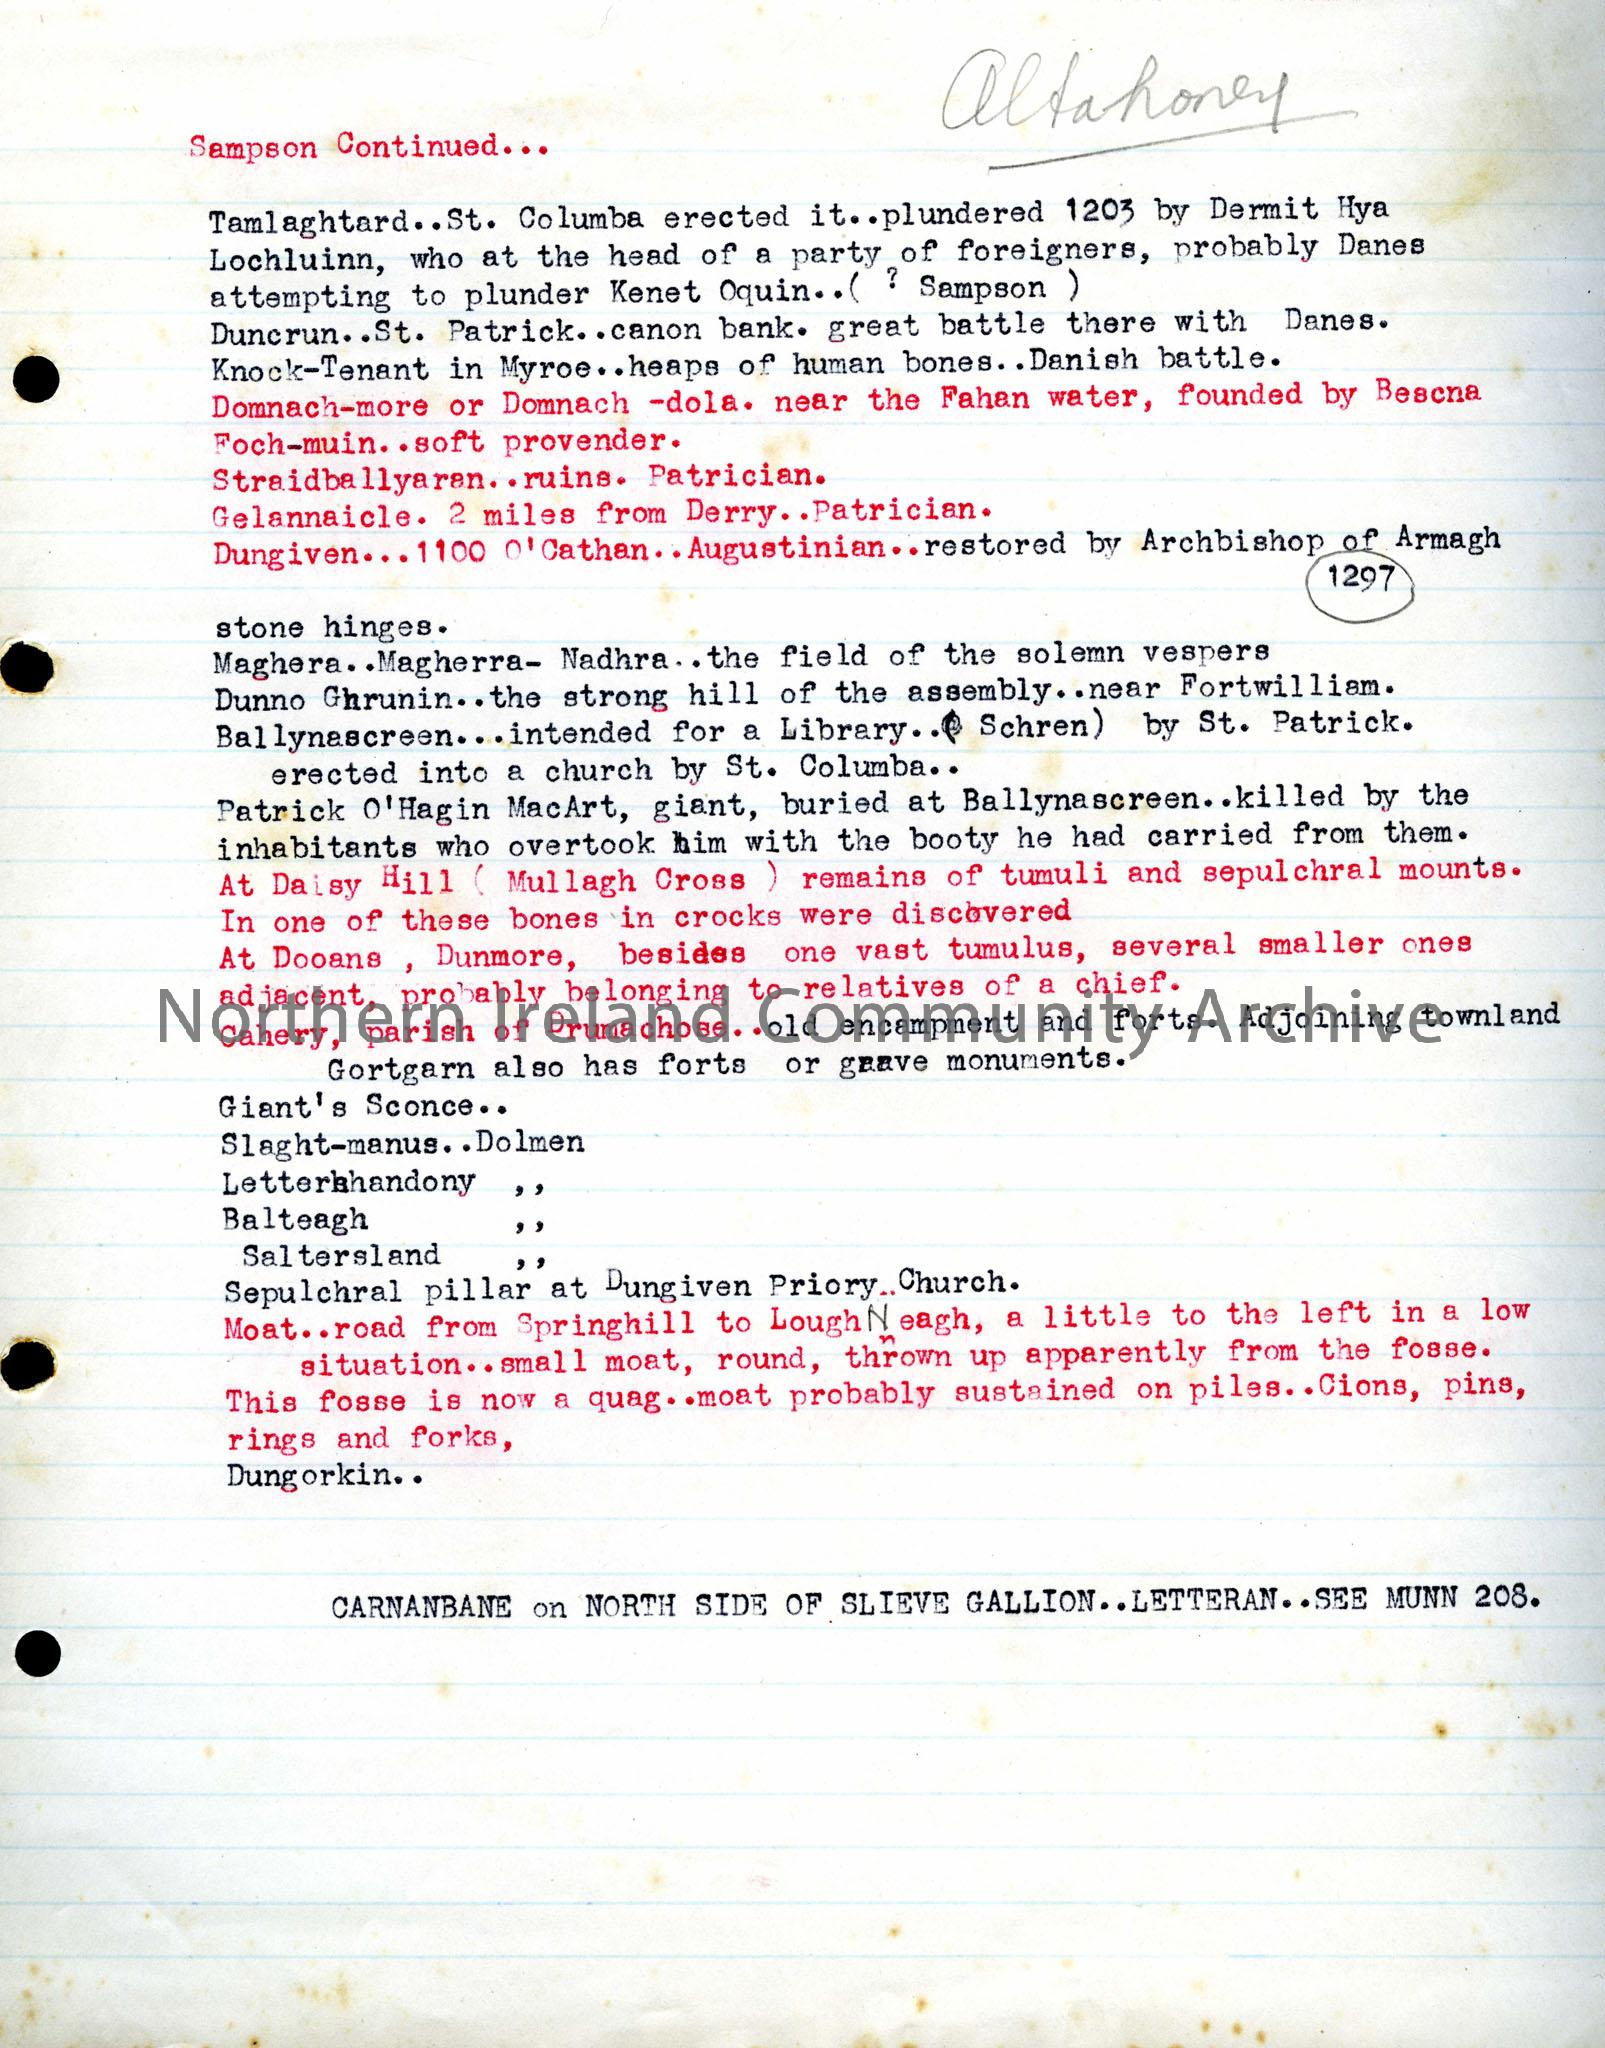 Altahoney
Sampson Continued...
Tamlaghtard..St. Columba erected it..plundered 1203 by Dermit Hya
Lochluinn, who at the head of a party of foreigners, probably Danes
attempting to plunder Kenet Oquin..( ? Sampson )
Duncrun..St. Patrick..canon bank. great battle there with Danes.
Knock-Tenant in Myroe..heaps of human bones..Danish battle.
Domnach-more or Domnach -dola. near the Fahan water, founded by Bescna
Foch-muin..soft provender.
Straidballyaran..ruins. Patrician.
Gelannaicle. 2 miles from Derry..Patrician.
Dungiven...1100 O'Cathan..Augustinian..restored by Archbishop of Armagh
1297
stone hinges.
Maghera..Magherra- Nadhra..the field of the solemn vespers
Dunno Ghrunin..the strong hill of the assembly..near Fortwilliam.
Ballynascreen...intended for a Library..( Schren) by St. Patrick.
erected into a church by St. Columba..
Patrick O'Hagin MacArt, giant, buried at Ballynascreen..killed by the
inhabitants who overtook him with the booty he had carried from them.
At Daisy Hill ( Mullagh Cross ) remains of tumuli and sepulchral mounts.
In one of these bones in crocks were discovered
At Dooans , Dunmore, besides one vast tumulus, several smaller ones
adjacent, probably belonging to relatives of a chief.
Northern Ireland Community Archive
Cahery, parish of Drumachose..old encampment and forts. Adjoining townland
Gortgarn also has forts or graave monuments.
Giant's Sconce..
Slaght-manus..Dolmen
Letterhhandony ,,
Balteagh ,,
Saltersland ,,
Sepulchral pillar at Dungiven Priory..Church.
Moat..road from Springhill to Lough Neagh, a little to the left in a low
situation..small moat, round, thrown up apparently from the fosse.
This fosse is now a quag..moat probably sustained on piles..Cions, pins,
rings and forks,
Dungorkin..
CARNANBANE on NORTH SIDE OF SLIEVE GALLION..LETTERAN..SEE MUNN 208.